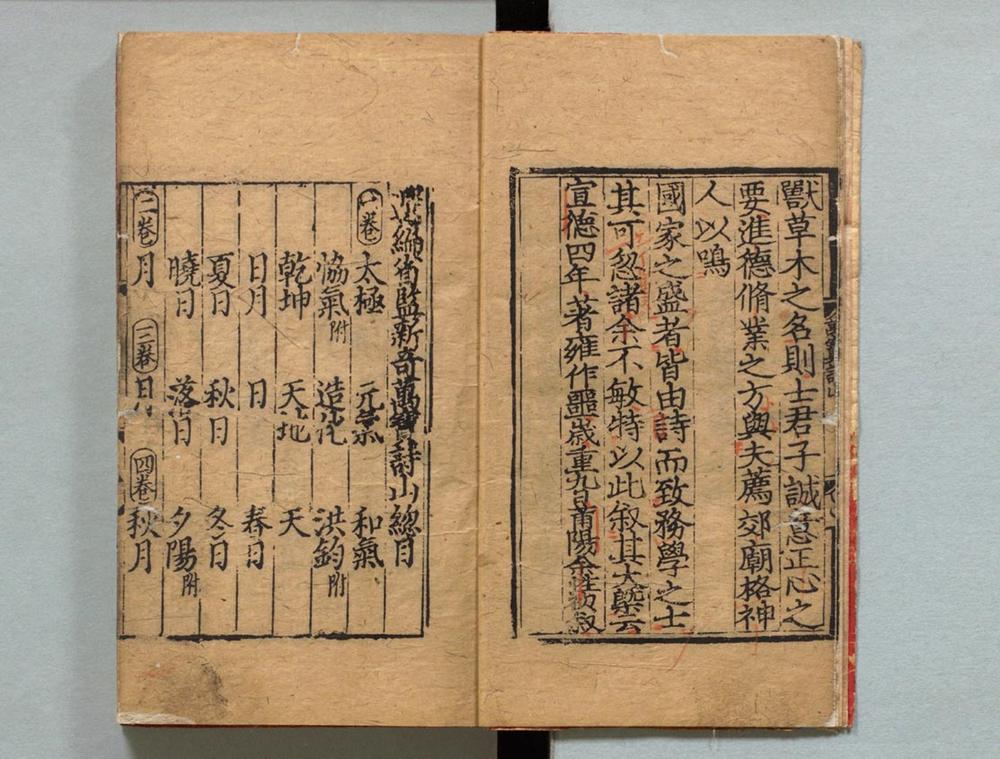 獸草木之名則士君子誠意正心之
要進德脩業之方與夫薦郊廟格神
人以鳴
國家之盛者皆由詩而致務學之士
其可忽諸余不敏特以此叙其大槩云
宣德四年著雍作噩歲重九日莆陽余性初叙
新奇萬寶詩山總目
一卷 太極 元氣 和氣
協氣附 造化 洪鈞附
乾坤 天地 天
日月 日 春日
夏日 秋日 冬日
曉日 落日 夕陽附
二卷 月 三卷 日月 四卷 秋月